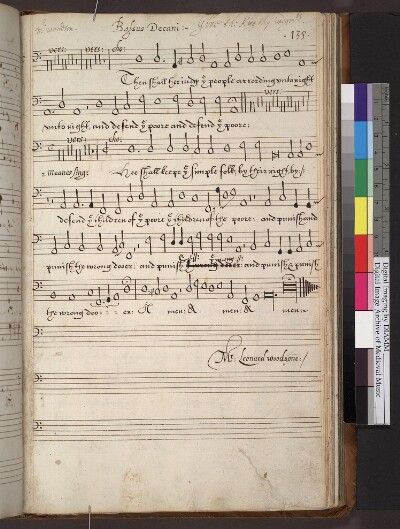 mr woodson. Bassus Decani:- Give the King thy iudgmts
135.
vers: vers: cho:
Then shall hee iudge ye people according unto right
vers:
unto right, and defend ye poore and defend ye poore:
cho:
meanes sing: Hee shall keepe ye simple folk, by their right, by:/
defend ye children of ye poore ye children of the poore: and punish and
punish the wrong dooer: and punish wrong dooer: and punish & punish
the wrong doo: : : er: A men: & men: & men:
Mr. Leonard woodsone:/
Digital Imaging by DIAMM
Digital Image Archive of Medieval Music